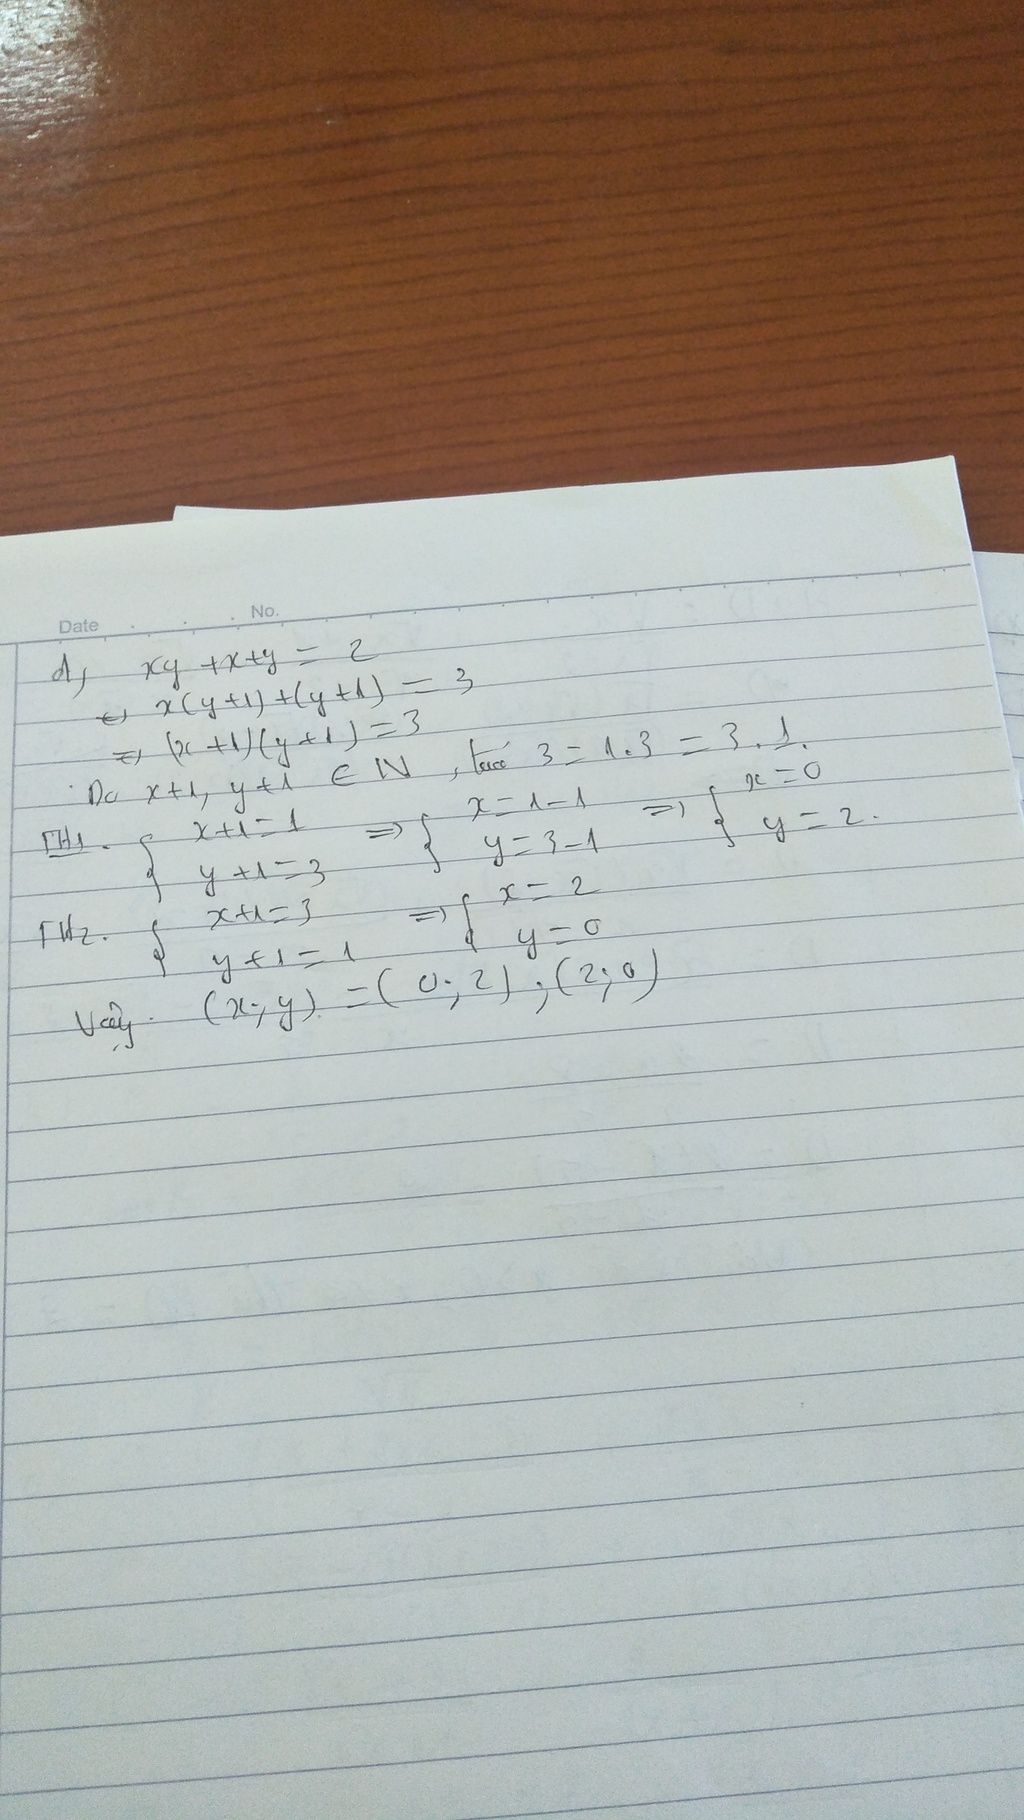 Date No.
d, xy + x + y = 2
⇔ x(y+1) + (y+1) = 3
⇒ (x+1)(y+1) = 3
Do x+1, y+1 ∈ N, 3 = 1.3 = 3.1.
TH1. { x+1=1 y+1=3 ⇒ { x=1-1 y=3-1 ⇒ { x=0 y=2.
TH2. { x+1=3 y+1=1 ⇒ { x=2 y=0
Vậy. (x;y) = (0;2);(2;0)